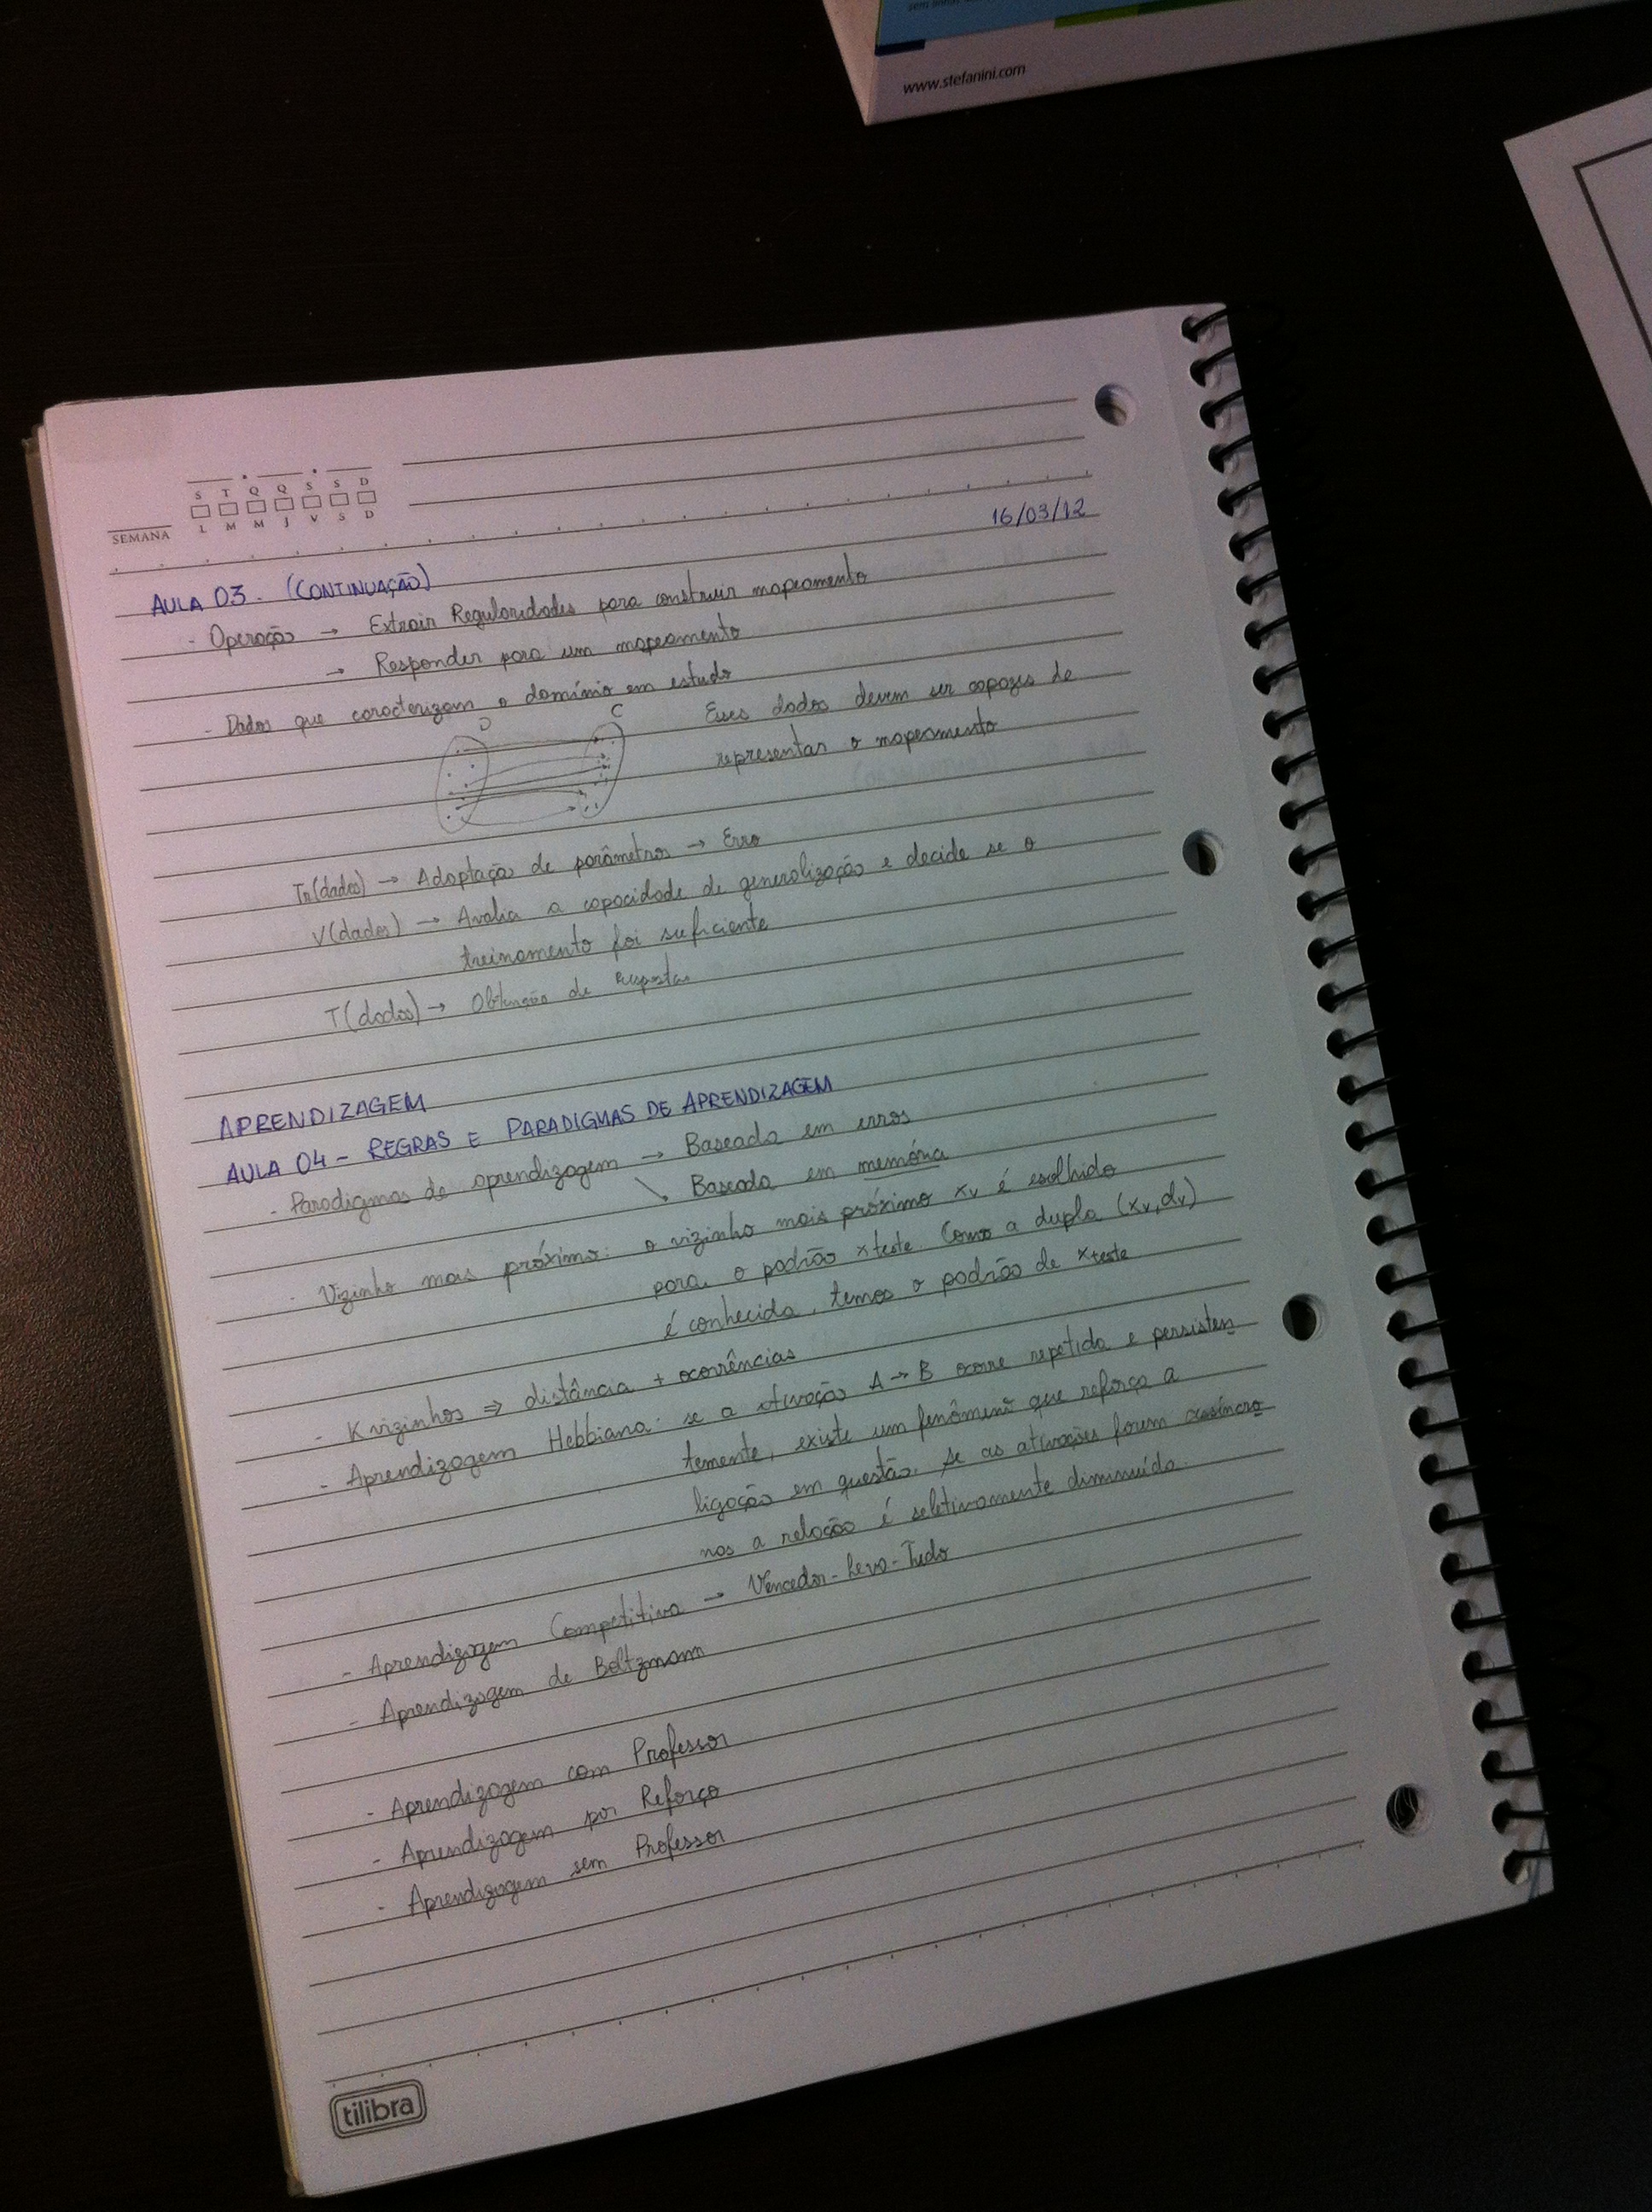 www.stefanini.com
S T Q Q S S D
L M M J V S D
SEMANA
16/03/12
AULA 03 - (CONTINUAÇÃO)
- Operação → Extrair Regularidades para construir mapeamento
→ Responder para um mapeamento
- Dados que caracterizam o domínio em estudo
D C
Esses dados devem ser capazes de
representar o mapeamento
Tr(dados) → Adaptação de parâmetros → Erro
V(dados) → Avalia a capacidade de generalização e decide se o
treinamento foi suficiente
T(dados) → Obtenção de resposta
APRENDIZAGEM
AULA 04 - REGRAS E PARADIGMAS DE APRENDIZAGEM
- Paradigmas de aprendizagem → Baseada em erros
↘ Baseada em memória
- Vizinho mais próximo: o vizinho mais próximo xv é escolhido
para o padrão xteste. Como a dupla (xv,dv)
é conhecida, temos o padrão de xteste
- K vizinhos ⇒ distância + ocorrências
- Aprendizagem Hebbiana: se a ativação A → B ocorre repetida e persisten
temente, existe um fenômeno que reforça a
ligação em questão. Se as ativações forem assíncro
nas a relação é seletivamente diminuída.
- Aprendizagem Competitiva → Vencedor-Leva-Tudo
- Aprendizagem de Boltzmann
- Aprendizagem com Professor
- Aprendizagem por Reforço
- Aprendizagem sem Professor
tilibra